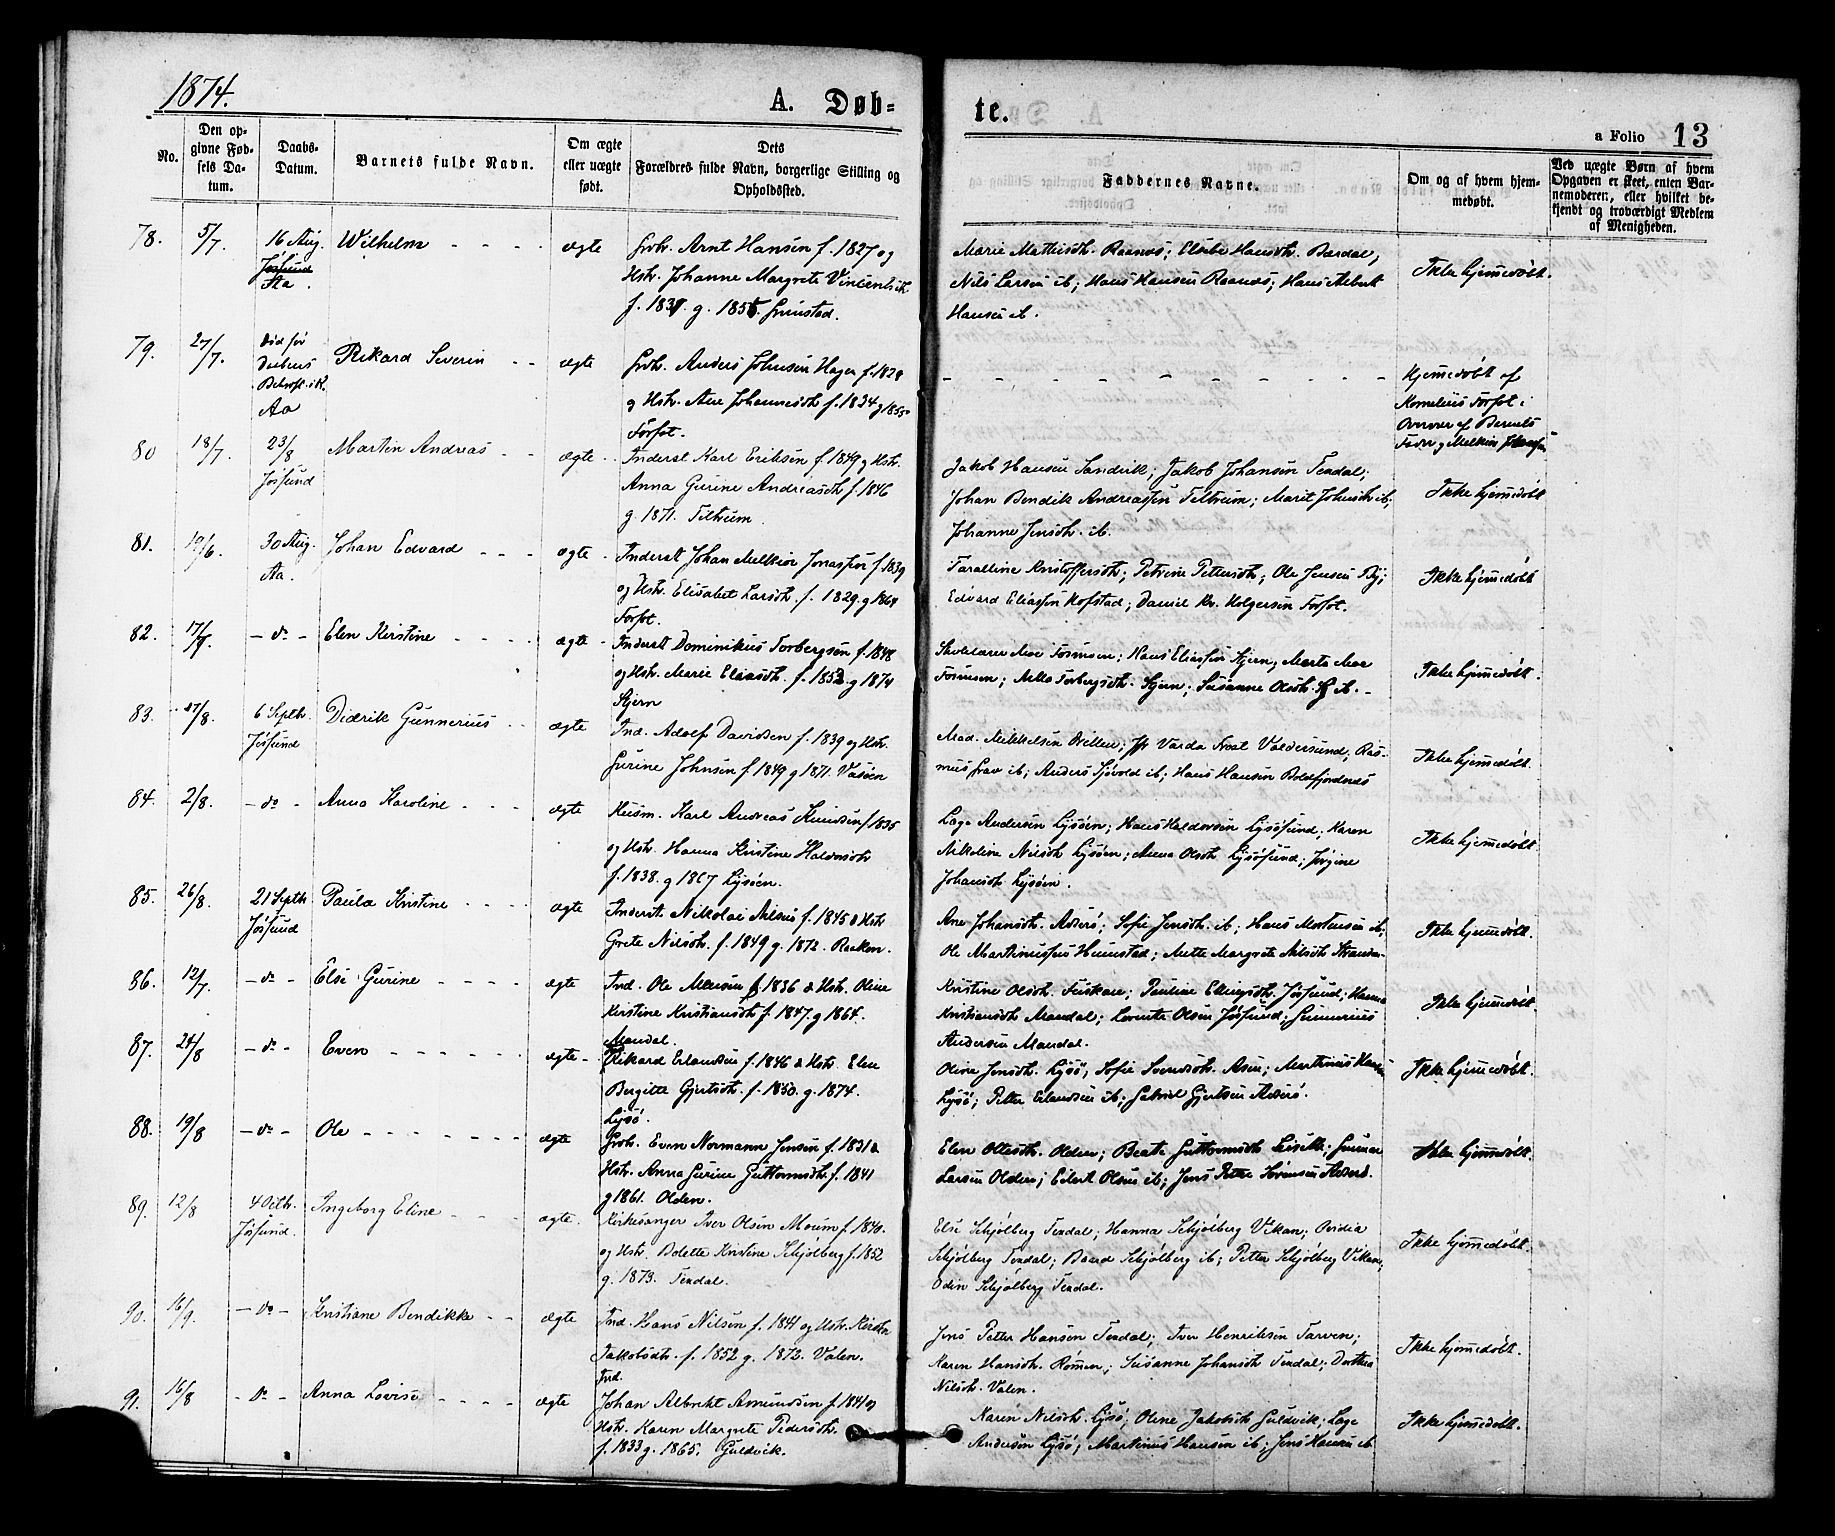 1874.
A. Døb-
te.
a Folio 13
No.
Den op-
givne Fød-
sels Da-
tum.
Daabs-
Datum.
Barnets fulde Navn.
Om ægte
eller uægte
født.
Dets
Forældres fulde Navn, borgerlige Stilling og
Opholdssted.
Faddernes Navne.
Om og af hvem hjem-
medøbt.
Ved uægte Børn af hvem
Opgaven er skeet, enten Bar-
nemoderen, eller hvilket be-
kjendt og troværdigt Medlem
af Menigheden.
78. 5/7. 16 Aug. Wilhelm ægte Grbr. Arnt Hansen f. 1827 og
Jøssund
Aa.
Hstr. Johanne Margrete
f. g. Grinstad.
Marie Mathisdtr. Raanes; Elsebe Hansdtr. Bardal;
Nils Larsen ib; Hans Hansen Raanes; Hans Albert
Hansen ib.
Ikke hjemmedøbt.
79. 27/7. Død før
Aa
Rikard Severin ægte Grbr. Anders Johnsen f. 1828
og Hstr. Ane Johannesdtr f. 1834 g 1855
Forfot.
Hjemmedøbt af
Kornelius Forfot i
Overvær af Barnets
Fader og
80 18/7. 23/8
Jøssund
Martin Andreas ægte. Inderst Karl Eriksen f. 1849 og Hstr.
Anna Gurine Andreasdtr f. 1846
g. 1871. Teltrum.
Jakob Hansen Sandvik; Jakob Johansen Texdal;
Johan Bendik Andreassen Teltrum; Marit Johnsdtr ib;
Johanne Jensdtr. ib.
Ikke hjemmedøbt
81. 19/6. 30 Aug.
Aa.
Johan Edvard ægte Inderst Johan Melkior Jonassen f. 1839
og Hstr. Elisabet Larsdtr. f. 1829. g 1864
Forfot.
Kristoffersdtr; Petrine Pettersdtr; Ole Jensen By;
Edvard Eliassen Hofstad; Daniel Kr. Holgersen Forfot.
Ikke hjemmedøbt
82. 17/7 - do - Elen Kirstine ægte Inderst Dominikus Torbergsen f. 1848
og Hstr. Marie Eliasdtr. f. 1852 g 1874
Stjern
Skolelærer Moe Hans Eliassen Stjern; Marta Moe
Torbergsdtr. Stjern; Susanne Olsdtr. ib.
Ikke hjemmedøbt.
83. 17/8. 6 Septbr.
Jøssund
Didrik Gunnerius ægte Ind. Adolf Davidsen f. 1839 og Hstr.
Gurine Johnsen f. 1849 g 1871. Valøen
Mad. Mikkelsen Frost Valdersund; Ras-
mus Grav ib; Anders Sjøvold ib; Hans Hansen
Ikke hjemmedøbt.
84. 2/8. - do - Anna Karoline ægte Husm. Karl Andreas Knudsen f. 1835
og Hstr. Hanna Kristine Haldorsdtr
f. 1838. g 1867 Lysøen.
Lage Andersen Lysøen; Hans Haldorsen Lysøsund; Karen
Nikoline Nilsdtr Lysøen; Anna Olsdtr. Lysøsund; Jørgine
Johansdtr Lysøen.
Ikke hjemmedøbt.
85. 26/8. 21 Septbr
Jøssund
Paula Kristine ægte Inderst Nikolai Nilsen f. 1845 & Hstr
Grete Nilsdtr. f. 1849 g. 1872. Raaken.
Ane Johansdtr. Asserø; Sofie Jensdtr. ib; Hans Mortensen ib;
Ole Martinussen Humstad; Mette Margrete Nilsdtr
Ikke hjemmedøbt.
86. 12/7. - do - Else Gurine ægte Ind. Ole Monsen f. 1836 & Hstr. Oline
Kirstine Kristiansdtr f. 1847. g 1864.
Mandal.
Kristine Olsdtr. Pauline Ellingsdtr Jøssund; Hanna
Kristiansdtr Mandal; Lorents Olsen Jøssund; Gunnerius
Andersen Mandal.
Ikke hjemmedøbt.
87. 24/8 - do - Even ægte Rikard Erlandsen f. 1846 & Hstr. Elen
Bergitte Gjertsdtr. f. 1850. g. 1874.
Lysø.
Oline Jensdtr. Lysø; Sofie Svendsdtr. Martinus Hansen
Lysø; Petter Erlandsen ib; Gabriel Gjertsen Asserø.
Ikke hjemmedøbt.
88. 19/8 - do - Ole ægte Grbr. Even Normann Jensen f. 1831 &
Hstr. Anna Gurine Guttormsdtr. f. 1841
g 1861. Olden.
Elen Ottesdtr. Olden; Beate Guttormsdtr Gunnar
Larsen Olden; Edert Olsen ib; Jens Petter Sørensen
Ikke hjemmedøbt.
89. 12/8 4 Octbr.
Jøssund.
Ingeborg Eline ægte. Kirkesanger Iver Olsen Moum f. 1840.
og Hstr. Bolette Kristine Schjølberg f. 1852
g. 1873. Texdal.
Else Schjølberg Texdal; Hanna Schjølberg Vikan; Ovidia
Schjølberg Texdal; Baard Schjølberg ib; Petter Schjølberg Vikan;
Odin Schjølberg Texdal.
Ikke hjemmedøbt.
90. 16/9. - do - Kristiane Bendikke ægte Ind. Hans Nilsen f. 1841 og Hstr.
Jakobsdtr. f. 1852 g. 1872. Valen.
Jens Petter Hansen Texdal; Iver Henriksen Tarven;
Karen Hansdtr. Rømen; Susanne Johansdtr Texdal; Dorthea
Nilsdtr. Valen.
Ikke hjemmedøbt.
91. 16/8 - do - Anna Lovise ægte Ind.
Johan Albrekt Amundsen f. 1841 og
Hstr. Karen Margrete Pedersdtr.
f. 1833 g. 1865. Guldvik.
Karen Nilsdtr. Lysø; Oline Jakobsdtr Guldvik; Lage
Andersen Lysø; Martinus Hansen ib; Jens Hansen ib
Ikke hjemmedøbt.